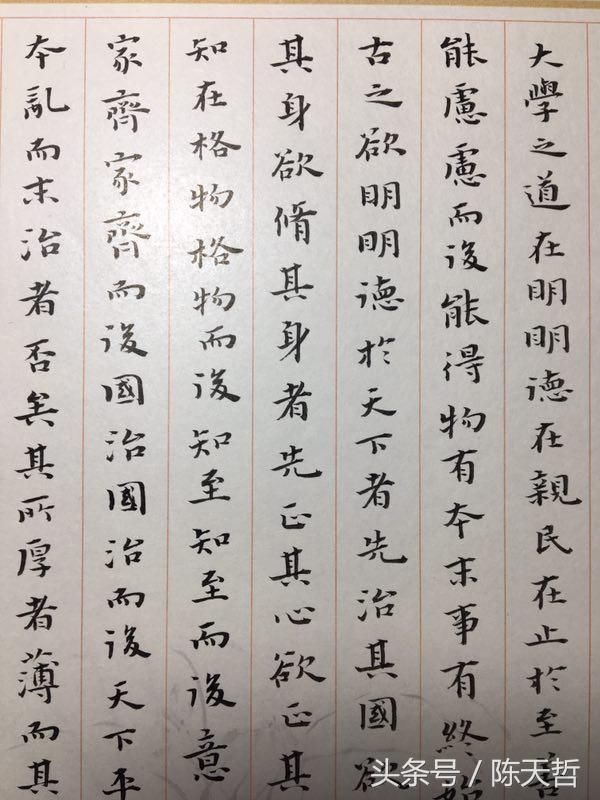 大學之道在明明德在親民在止於至善
能慮慮而後能得物有本末事有終始
古之欲明明德於天下者先治其國欲
其身欲脩其身者先正其心欲正其
知在格物格物而後知至知至而後意
家齊家齊而後國治國治而後天下平
本亂而末治者否矣其所厚者薄而其
头条号／陈天哲